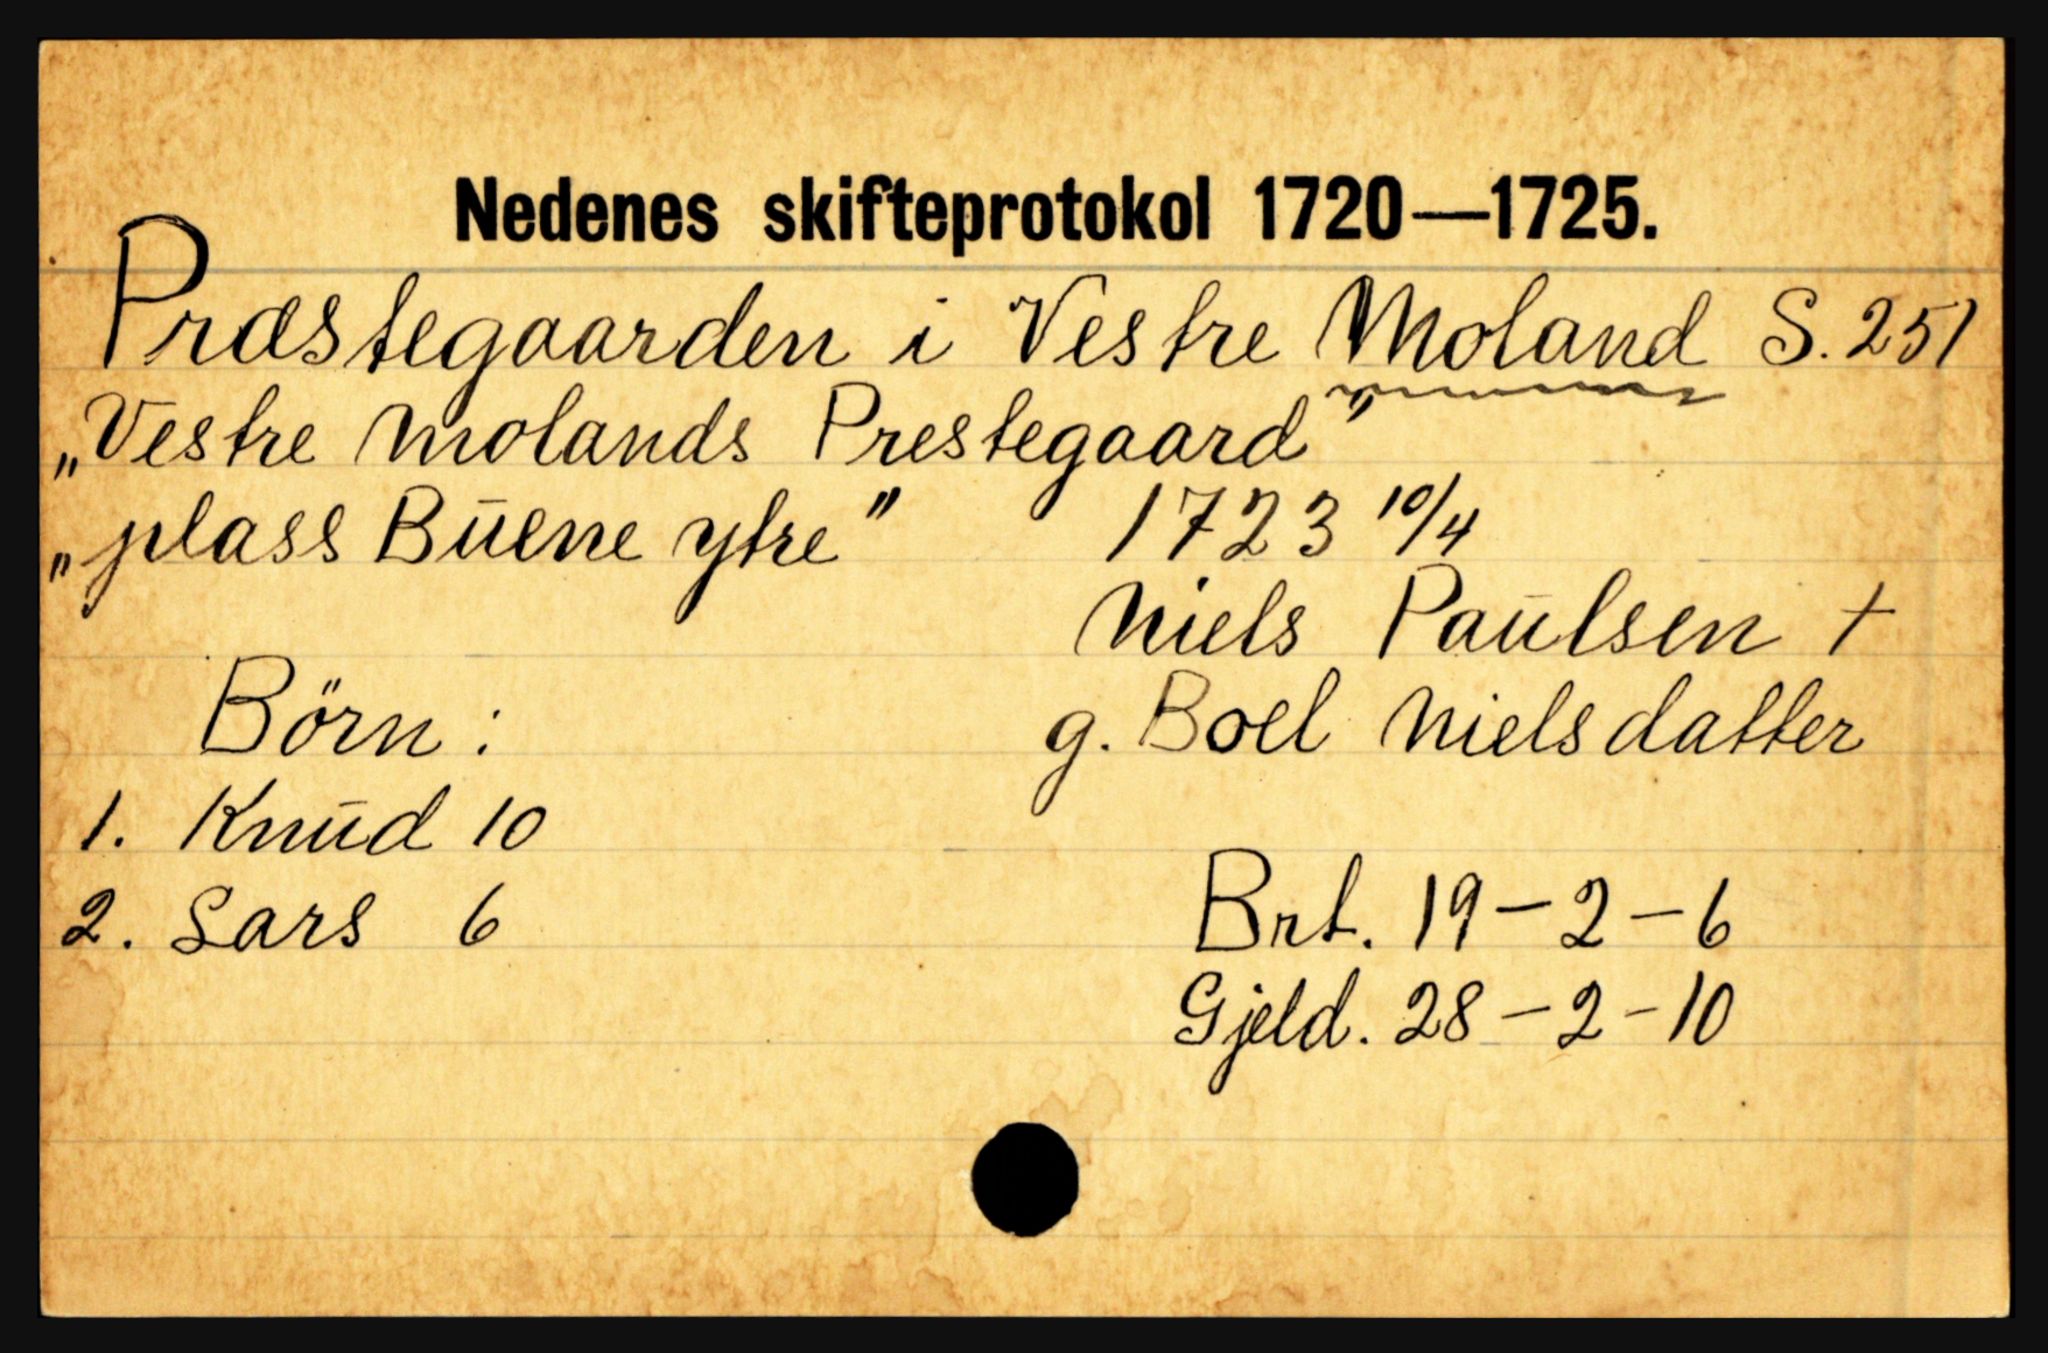 Nedenes skifteprotokol 1720—1725.
Præstegaarden i Vestre Moland S. 251
„Vestre Molands Prestegaard"
„plass Buene ytre" 1723 10/4
Niels Paulsen †
Börn: g. Boel Nielsdatter
1. Knud 10
2. Lars 6 Brt. 19-2-6
Gjeld. 28-2-10